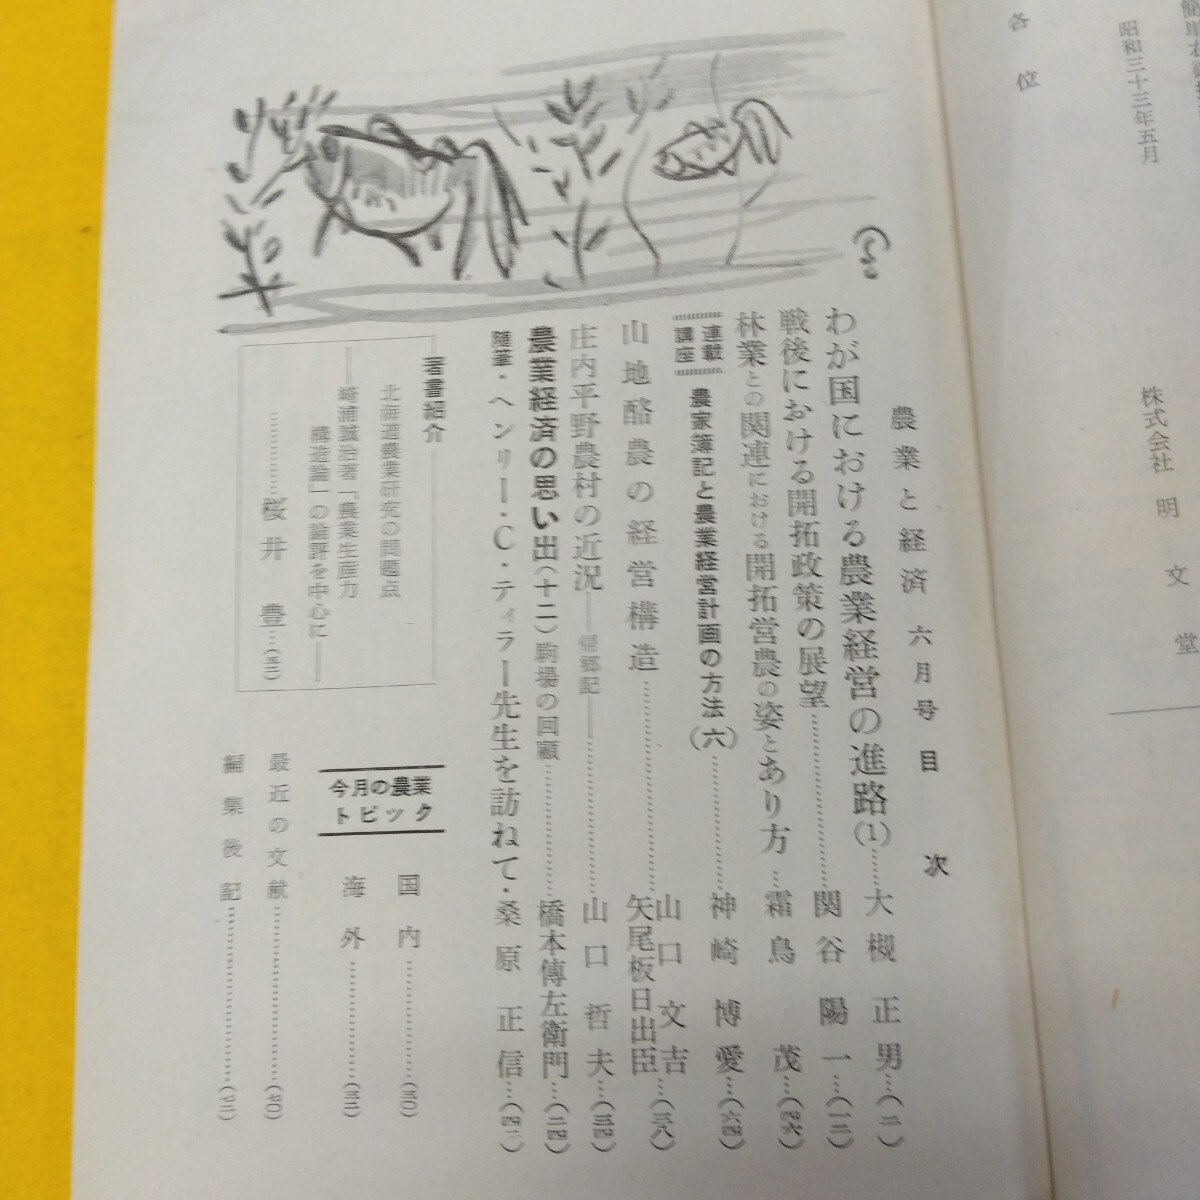 各位
昭和三十三年五月
株式会社 明文堂
農業と経済 六月号 目次
わが国における農業経営の進路(1)……大槻正男…(二)
戦後における開拓政策の展望……関谷陽一…(一二)
林業との関連における開拓営農の姿とあり方…霜鳥茂…(四六)
連載講座 農家簿記と農業経営計画の方法(六)……神崎博愛…(六四)
山地酪農の経営構造……山口文吉 矢尾板日出臣…(三八)
庄内平野農村の近況――帰郷記――……山口哲夫…(三四)
農業経済の思い出(十二)駒場の回顧……橋本傳左衛門…(二四)
随筆・ヘンリー・C・テイラー先生を訪ねて・桑原正信…(四二)
著書紹介
北海道農業研究の問題点
――崎浦誠治著「農業生産力
構造論」の論評を中心に――
……桜井豊…(五二)
今月の農業
トピック
国内……(三〇)
海外……(三二)
最近の文献……(七〇)
編集後記……(七二)